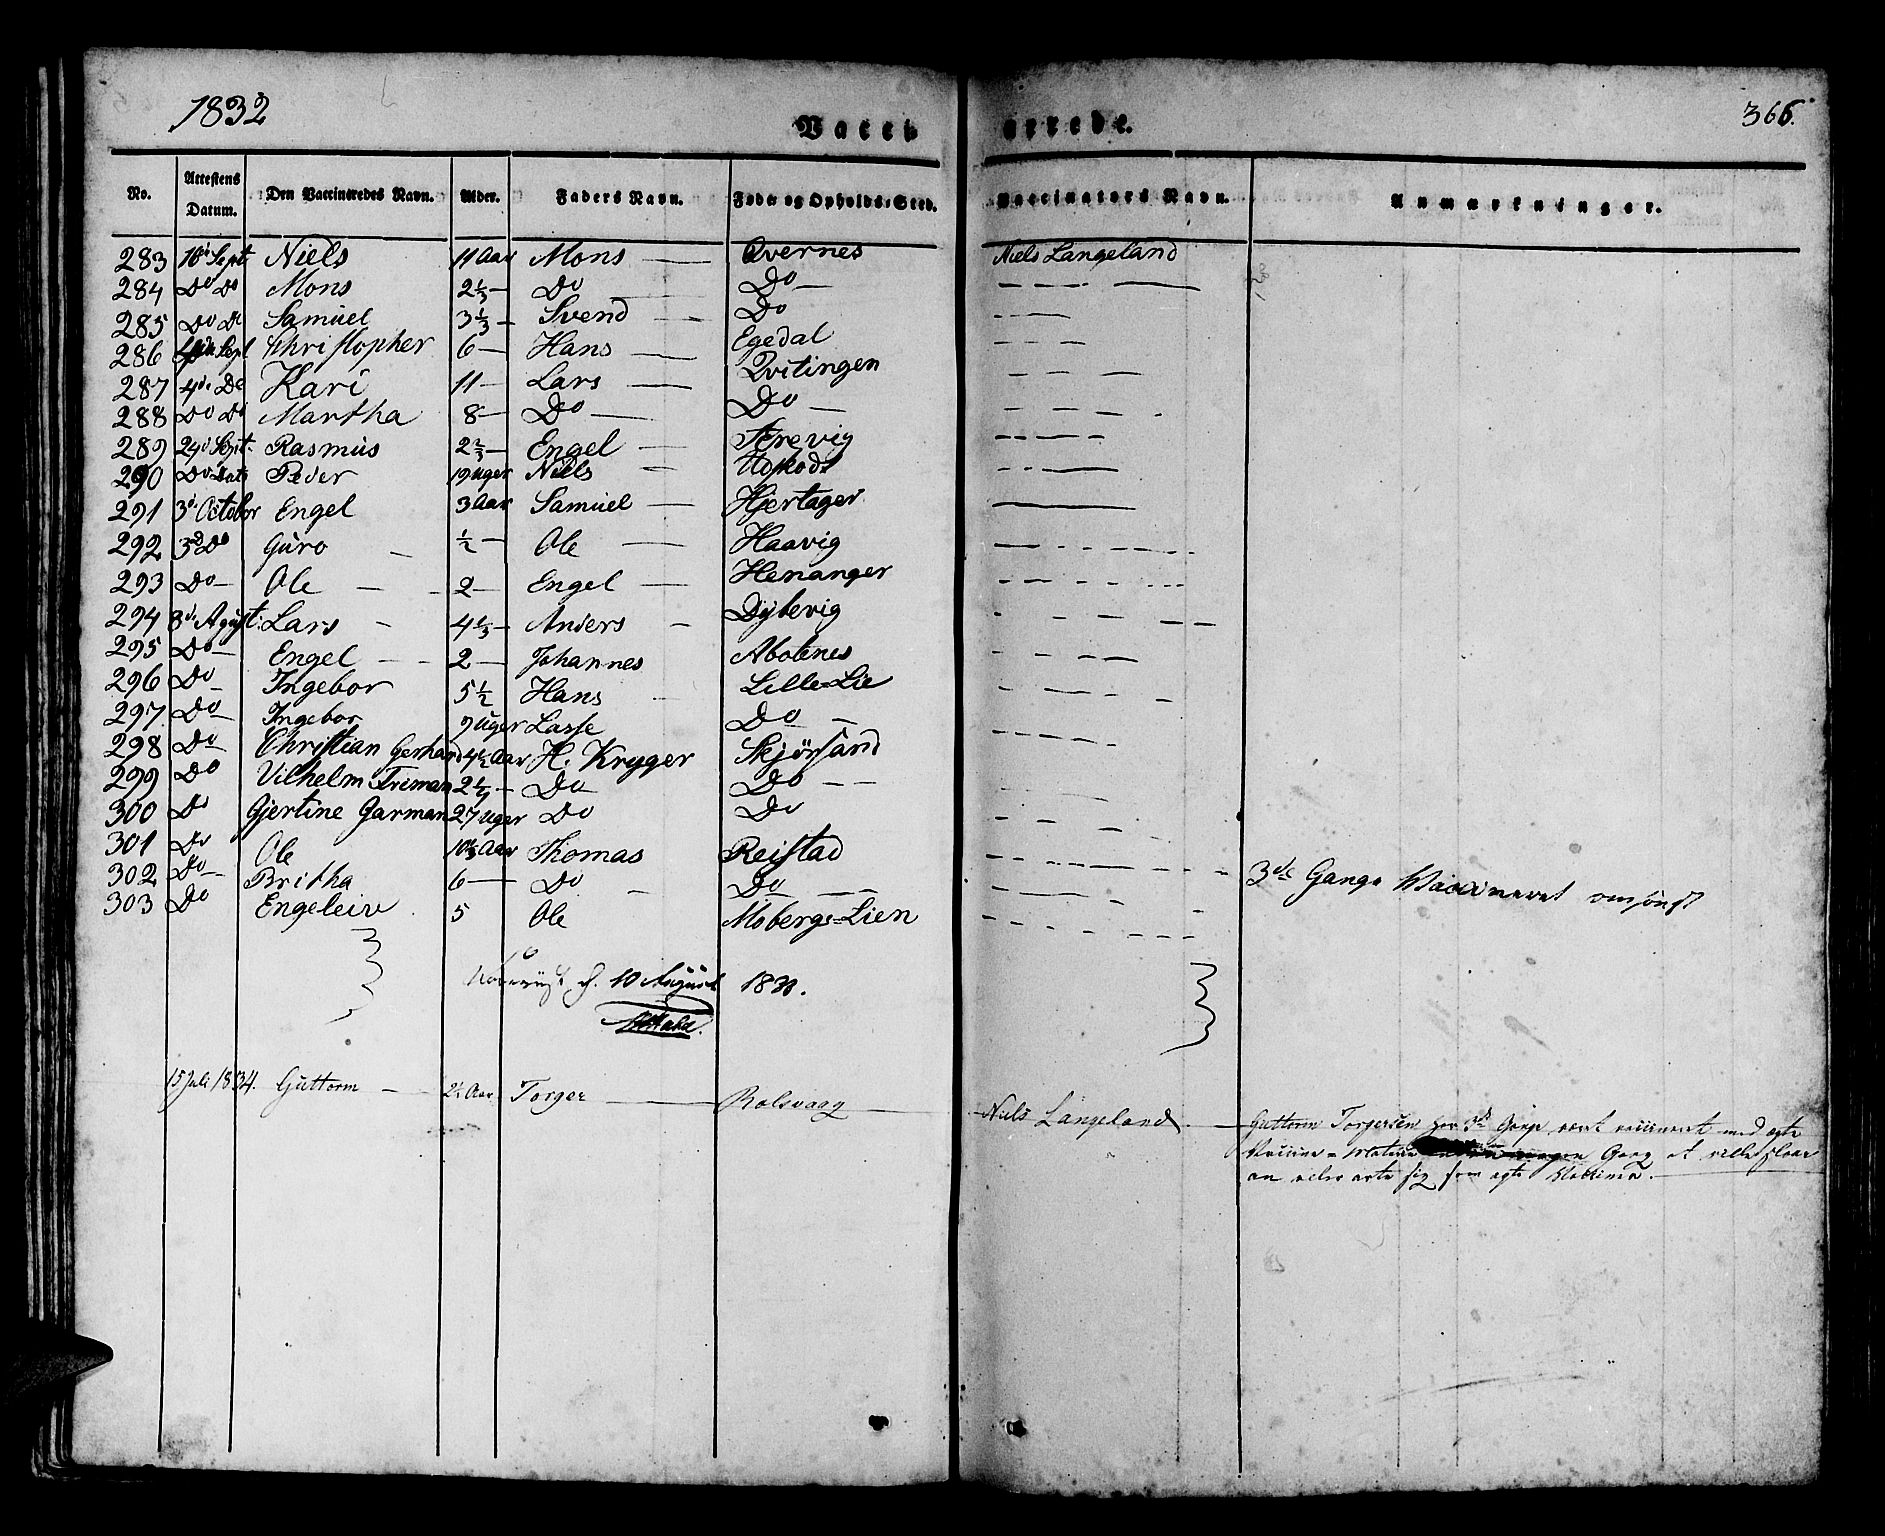 1832
Vacci nerede.
366.
No. Attestens Datum. Den Vaccineredes Navn. Alder. Faders Navn. Føde og Opholds-Sted. Vaccinators Navn. Anmærkninger.
283 16de Sept Niels 11 Aar Mons — Qvernes Niels Langeland
284 Do Do Mons 2 1/3 — Do Do —
285 Do Do Samuel 3 1/3 — Svend — Do
286 Sept Christopher 6 — Hans — Egedal
287 4de Do Kari 11 — Lars — Qvitingen
288 Do Do Martha 8 — Do — Do —
289 24d Sept. Rasmus 2 2/3 — Engel — Strevig
290 Do Dato Peder 19 Uger Niels —
291 3d October Engel 3 Aar Samuel — Hjertager
292 3d Do Guro — 1/2 — Ole — Haavig
293 Do — Ole — 2 — Engel — Henanger
294 8d Agust: Lars — 4 1/3 — Anders — Dybevig
295 Do — Engel — 2 — Johannes Abotnes
296 Do — Ingebor 5 1/2 Hans Lille=Lie
297 Do — Ingebor 9 Uger Lasse Do —
298 Do Christian Gerhard 4 1/2 Aar H. Kryger Skjørsand
299 Do Vilhelm Friman — Do Do —
300 Do Gjertine Garman 27 Uger Do Do
301 Do Ole 10 1/3 Aar Thomas Reistad
302 Do — Britha 6 — Do — Do — 3de Gange Vaccineret omsonst
303 Do Engeleiv 5 Ole Mobergs=Lien
10 August 183
15 Juli 1834. Guttorm — 2 1/2 Aar Torger — Rolsvaag — Niels Langeland — Guttorm Torgersen har 3de Gang været vaccineret med ægte
Vaccine = Materie Gang at ville slaae
an eller arte sig som ægte Vaccine. —